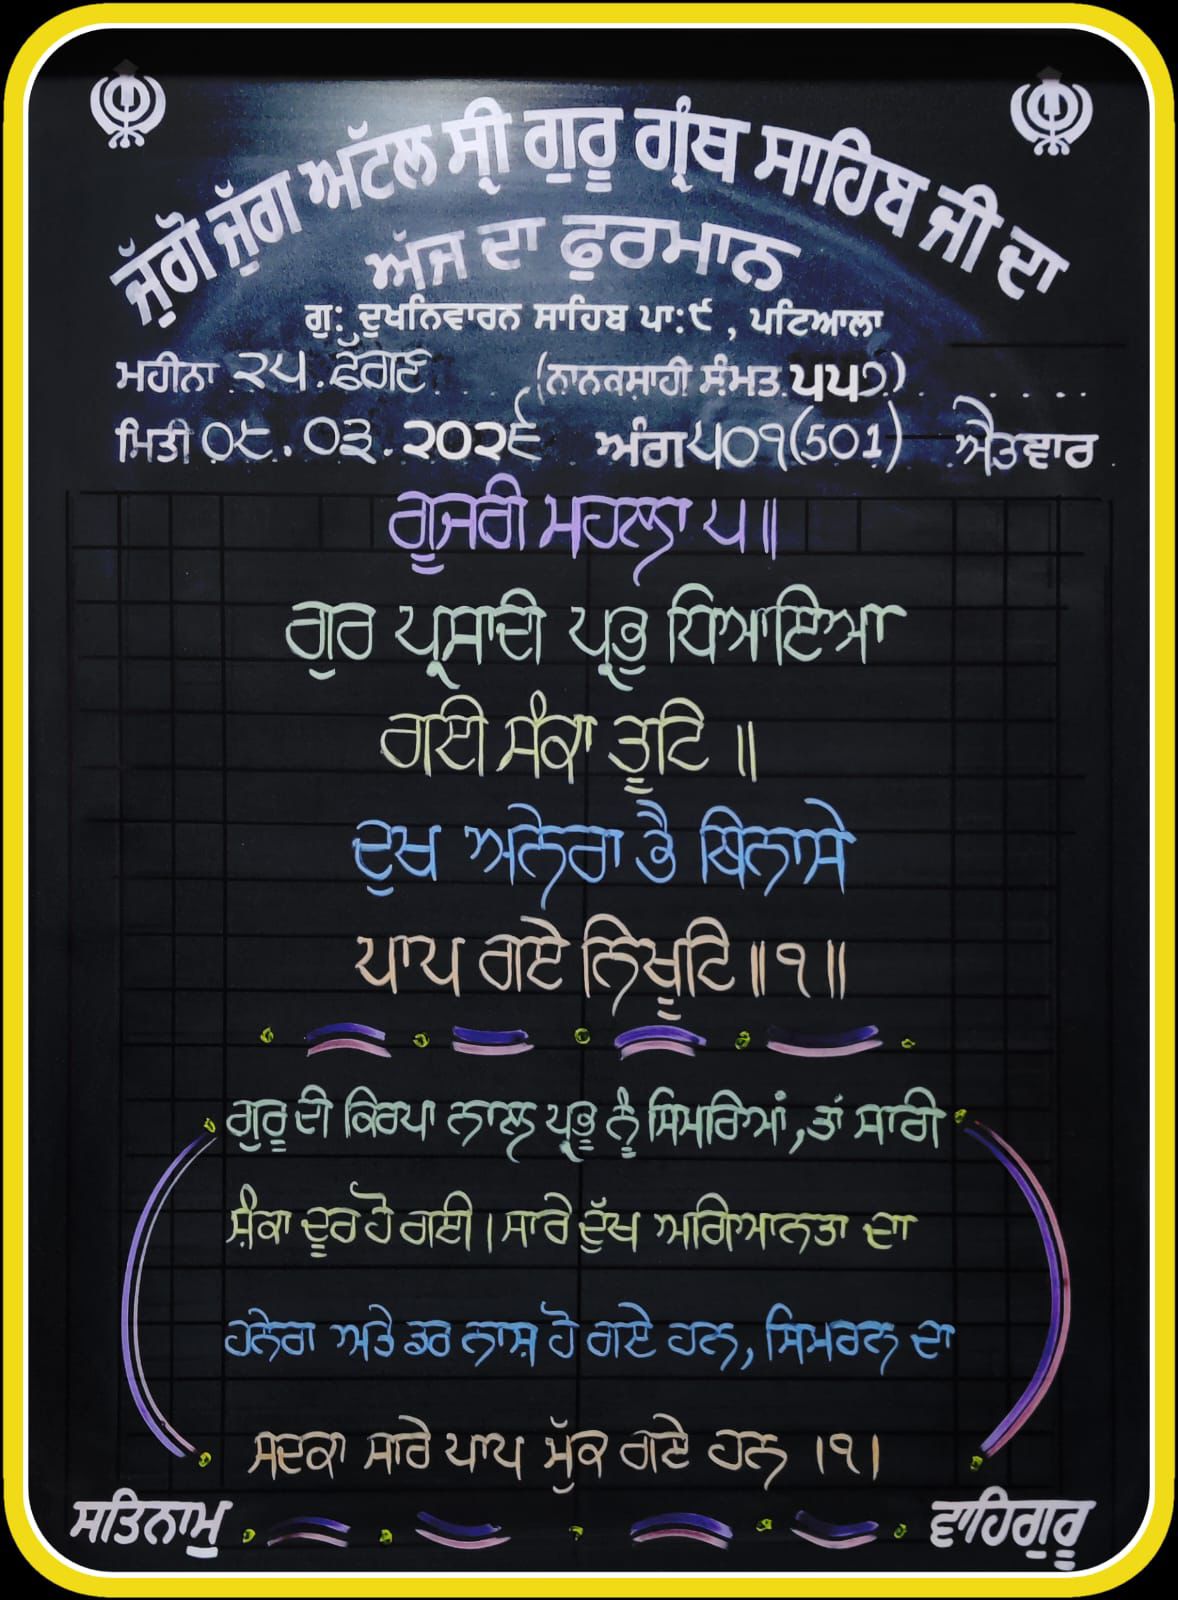 ਜੁੱਗੋ ਜੁੱਗ ਅਟੱਲ ਸ੍ਰੀ ਗੁਰੂ ਗ੍ਰੰਥ ਸਾਹਿਬ ਜੀ ਦਾ
ਅੱਜ ਦਾ ਫੁਰਮਾਨ
ਗੁ: ਦੁਖਨਿਵਾਰਨ ਸਾਹਿਬ ਪਾ:੯, ਪਟਿਆਲਾ
ਮਹੀਨਾ ੨੫.ਫੱਗਣ (ਨਾਨਕਸ਼ਾਹੀ ਸੰਮਤ ੫੫੭)
ਮਿਤੀ ੦੮.੦੩.੨੦੨੬ ਅੰਗ ੫੦੧(501) ਐਤਵਾਰ
ਗੂਜਰੀ ਮਹਲਾ ੫॥
ਗੁਰ ਪ੍ਰਸਾਦੀ ਪ੍ਰਭੁ ਧਿਆਇਆ
ਗਈ ਸੰਕਾ ਤੂਟਿ ॥
ਦੁਖ ਅਨੇਰਾ ਭੈ ਬਿਨਾਸੇ
ਪਾਪ ਗਏ ਨਿਖੂਟਿ॥੧॥
ਗੁਰੂ ਦੀ ਕਿਰਪਾ ਨਾਲ ਪ੍ਰਭੂ ਨੂੰ ਸਿਮਰਿਆਂ, ਤਾਂ ਸਾਰੀ
ਸ਼ੰਕਾ ਦੂਰ ਹੋ ਗਈ। ਸਾਰੇ ਦੁੱਖ ਅਗਿਆਨਤਾ ਦਾ
ਹਨੇਰਾ ਅਤੇ ਡਰ ਨਾਸ਼ ਹੋ ਗਏ ਹਨ, ਸਿਮਰਨ ਦਾ
ਸਦਕਾ ਸਾਰੇ ਪਾਪ ਮੁੱਕ ਗਏ ਹਨ ।੧।
ਸਤਿਨਾਮੁ ਵਾਹਿਗੁਰੂ